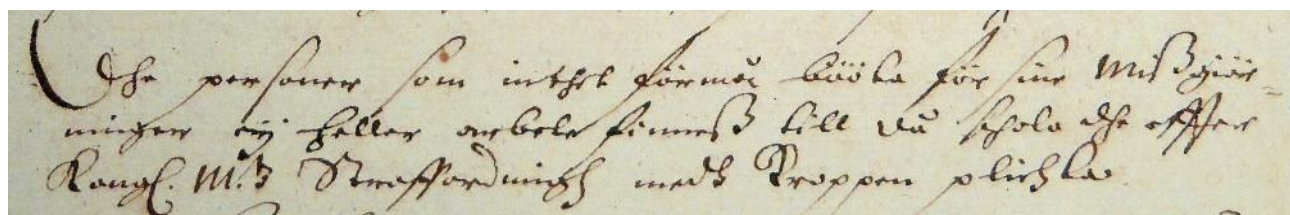 Dhe personer som inthet förmå bööta för sine Mißgiär-
ninger eij heller arbete finneß till då schola dhe effter
Kongl. M:tz Straffordningh medh Kroppen plichta